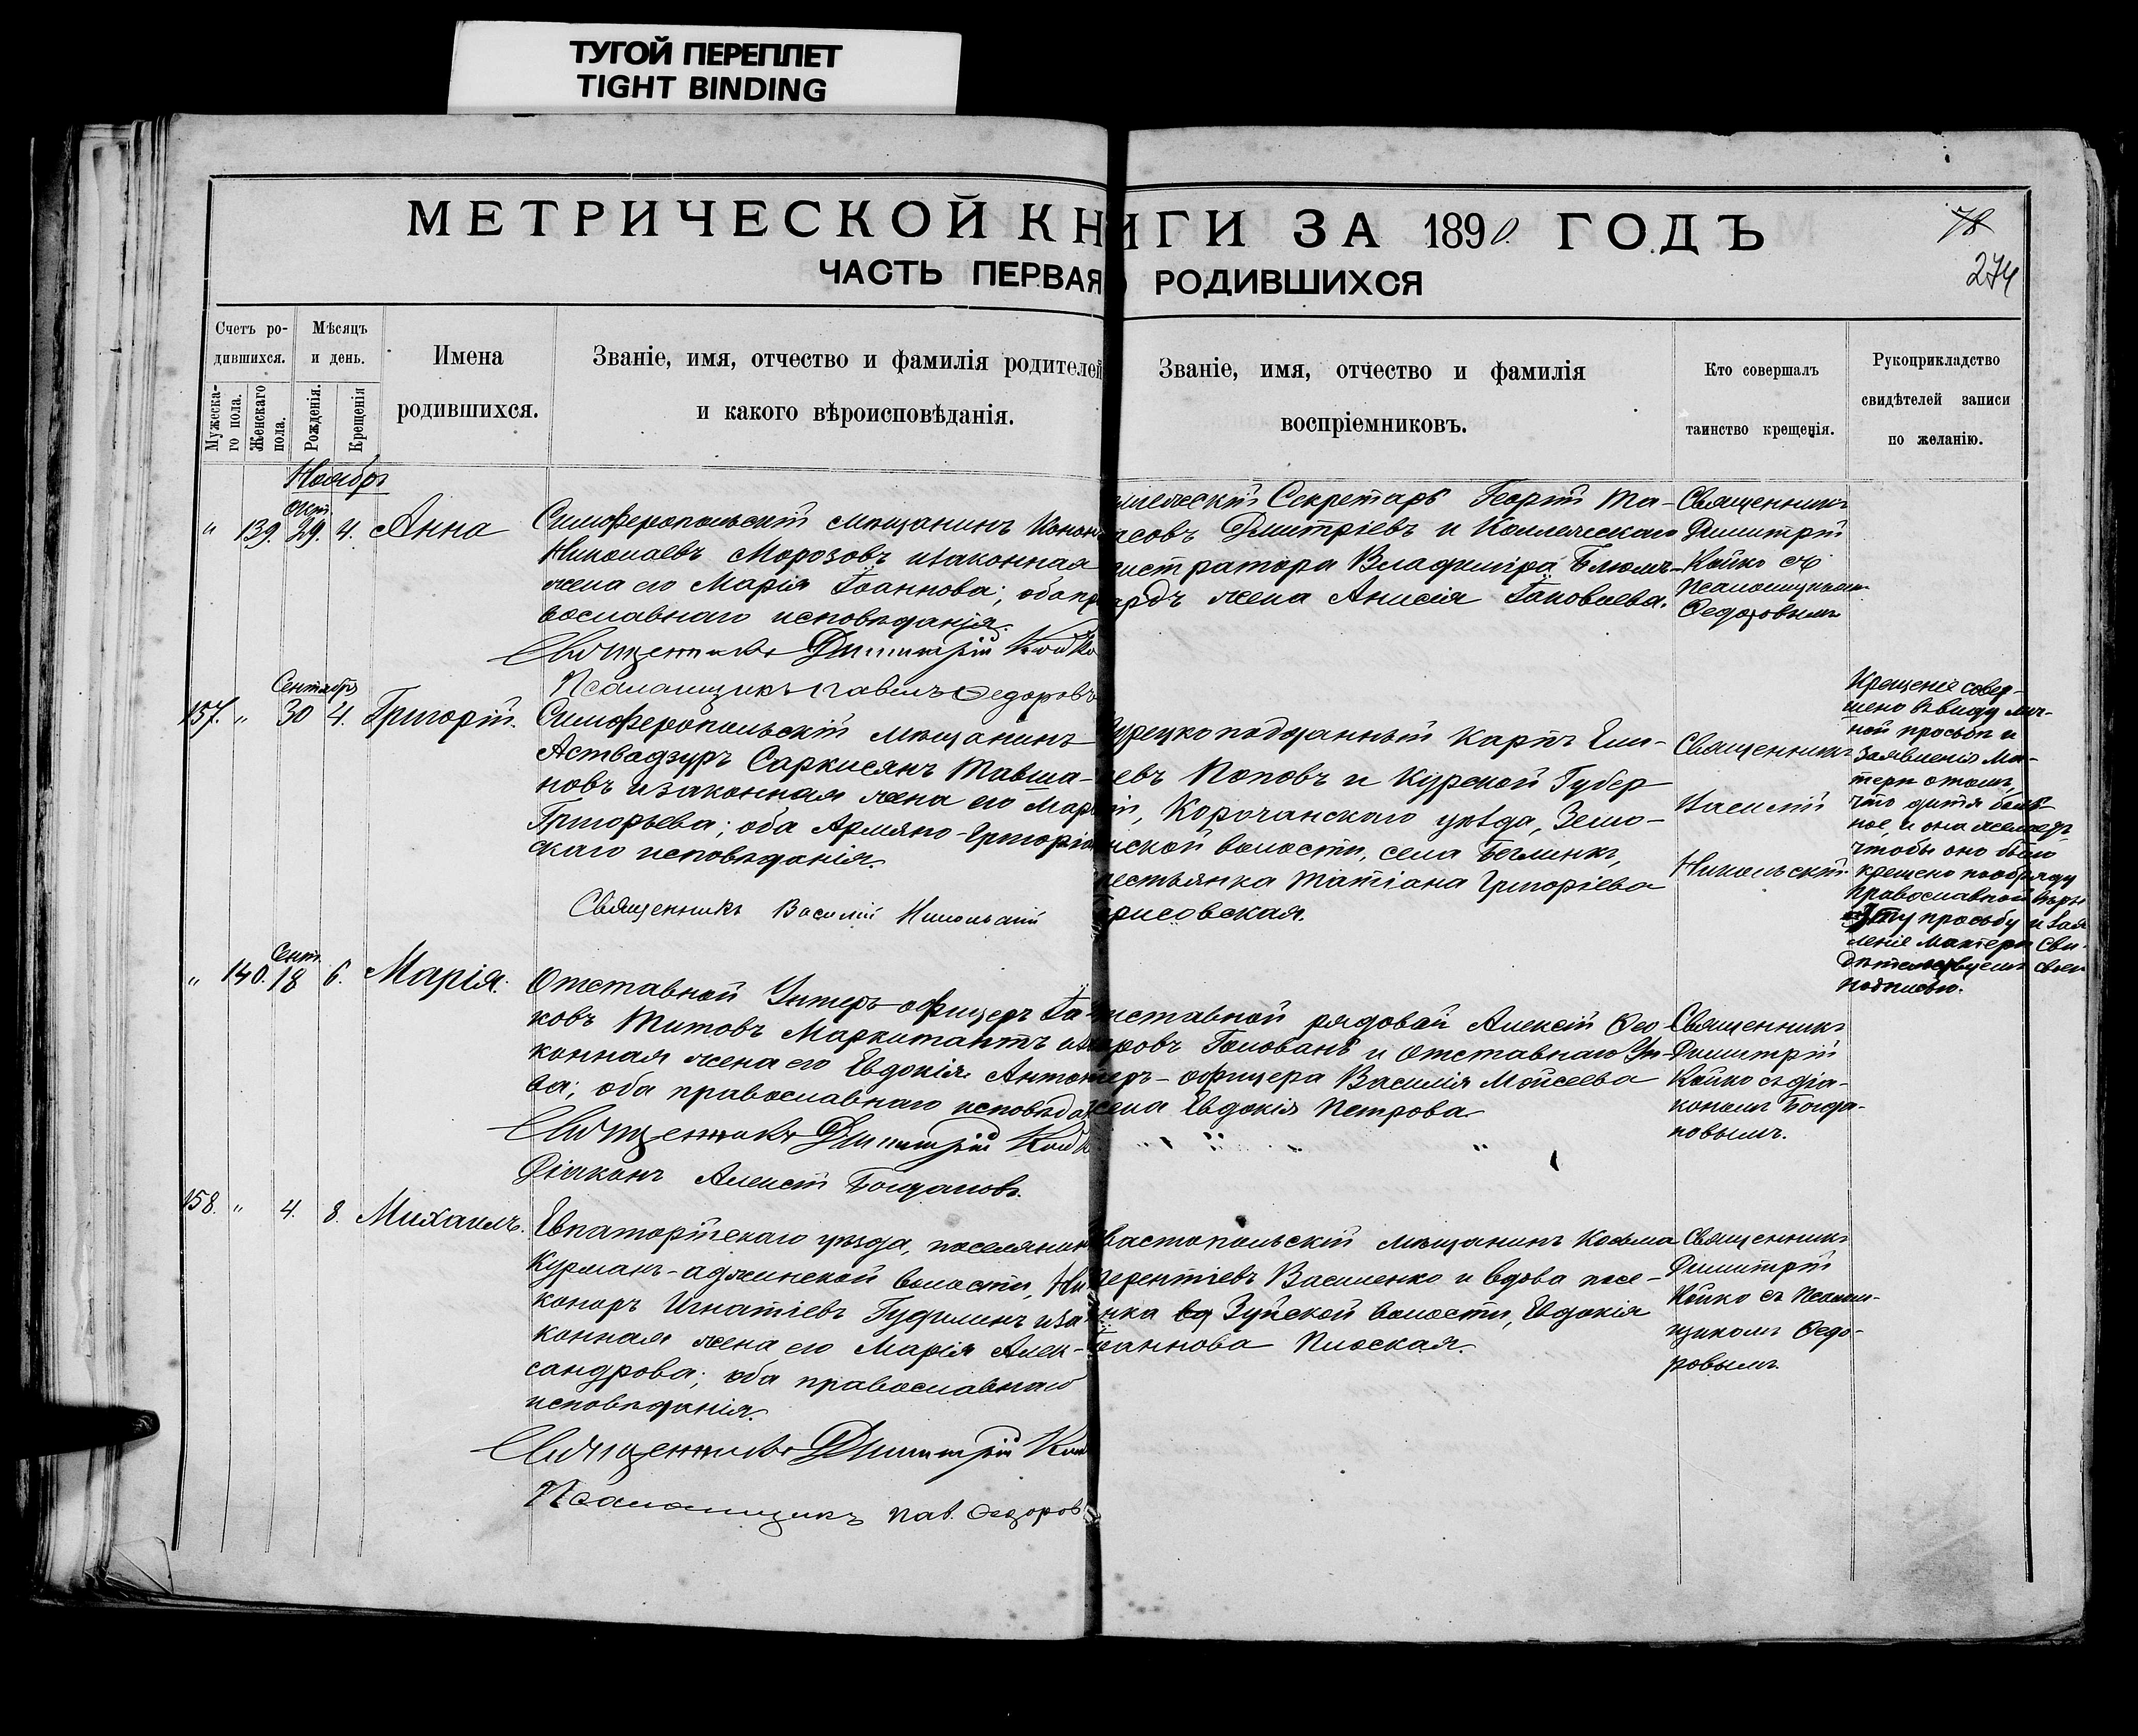 ТУГОЙ ПЕРЕПЛЕТ
TIGHT BINDING
МЕТРИЧЕСКОЙ КНИГИ ЗА 1890 ГОДЪ
ЧАСТЬ ПЕРВАЯ О РОДИВШИХСЯ
78
274
Счетъ ро-
дившихся.
Мужеска-
го пола.
Женскаго
пола.
Мѣсяцъ
и день.
Рожденія.
Крещенія
Имена
родившихся.
Званіе, имя, отчество и фамилія родителей
и какого вѣроисповѣданія.
Званіе, имя, отчество и фамилія
воспріемниковъ.
Кто совершалъ
таинство крещенія.
Рукоприкладство
свидѣтелей записи
по желанію.
Ноябрь
Окт.
" 139. 29. 4. Анна
Симферопольскій мѣщанинъ
Николаевъ Морозовъ и законная
жена его Марія Іоаннова; оба пра
вославнаго исповѣданія.
Священникъ Димитрій Койко
Псаломщикъ Павелъ Федоровъ
Секретарь Георгій Та-
расовъ Дмитріевъ и Коллежскаго
Регистратора Владиміра Блюм-
жена Анисія Іаковлева.
Священникъ
Димитрій
Койко съ
Псаломщикомъ
Федоровымъ
Сентябрь
157. " 30 4. Григорій.
Симферопольскій мѣщанинъ
Аствадзуръ Саркисянъ Тавша-
новъ и законная жена его Марія
Григорьева; оба Армяно-Григоріан
скаго исповѣданія.
Священникъ Василій Никольскій
Турецкоподданный Карпъ Ели-
евъ Поповъ и Курской Губер
ніи, Корочанскаго уѣзда, Зимо-
венской волости, села
крестьянка Татіана Григоріева
Борисовская.
Священникъ
Василій
Никольскій.
Крещеніе совер-
шено въ виду лич-
ной просьбы и
заявленія Ма-
тери о томъ,
что дитя боль-
ное, и она желаетъ
чтобы оно было
крещено по обряду
Православной вѣры
Эту просьбу и заяв
леніе матери сви-
дѣтельствуемъ своею
подписью.
Сент.
" 140. 18 6. Марія.
Отставной Унтеръ-офицеръ Іа-
ковъ Титовъ Маркитантъ и за
конная жена его Евдокія Антоно
ва; оба православнаго исповѣда
Священникъ Димитрій Койко
Діаконъ Алексій Богдановъ.
Отставной рядовой Алексій Фео-
доровъ Голованъ и отставнаго Ун-
теръ-офицера Василія Мойсеева
жена Евдокія Петрова
Священникъ
Димитрій
Койко съ діа-
кономъ Богда-
новымъ.
158. " 4. 8. Михаилъ.
Евпаторійскаго уѣзда, поселянинъ
Курманъ-аджинской волости, Ни
каноръ Игнатіевъ Гудилинъ и за
конная жена его Марія Алек-
сандрова; оба православнаго
исповѣданія.
Священникъ Димитрій Койко
Псаломщикъ Пав. Федоровъ
Севастопольскій мѣщанинъ Козьма
Терентіевъ Василенко и вдова посе-
лянка Зуйской волости, Евдокія
Іоаннова Плоская.
Священникъ
Димитрій
Койко съ Псалом-
щикомъ Федо-
ровымъ